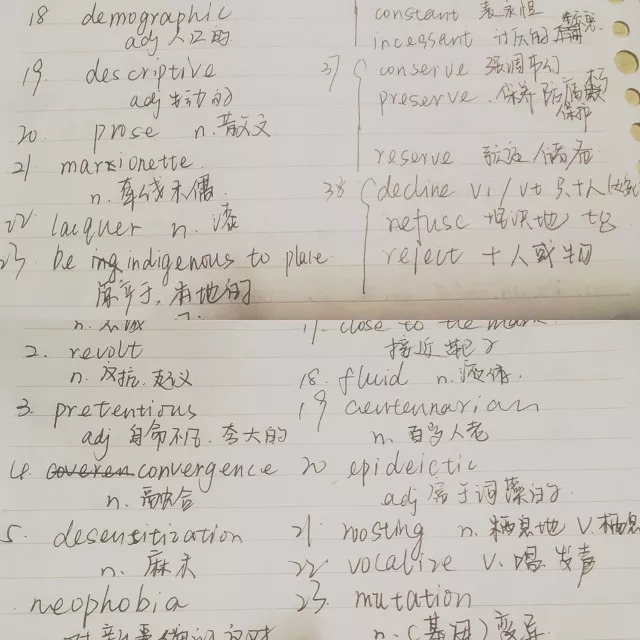 18 demographic
adj 人口的
19. descriptive
adj 生动的
20. prose n. 散文
21 marxionette.
n. 牵线木偶.
22 lacquer n. 漆
23 be indigenous to place.
原产于, 本地的
constant 表永恒
incessant
37 conserve 强调节约
preserve 保养 防腐
保护
reserve 储备
38 decline vi / vt 只+人
refuse 坚决地 +to
reject + 人或物
2. revolt
n. 反抗. 起义
3. pretentious
adj 自命不凡. 夸大的
4. convergence
n. 融合
5. desensitization
n. 麻木
neophobia
17. close to the mark.
接近靶子
18. fluid n. 液体.
19 centennarian
n. 百岁人老
20 epideictic
adj 属于词藻的
21 roosting n. 栖息地 v. 栖息
22 vocalize v. 唱. 发声
23. mutation
n. (基因) 变异